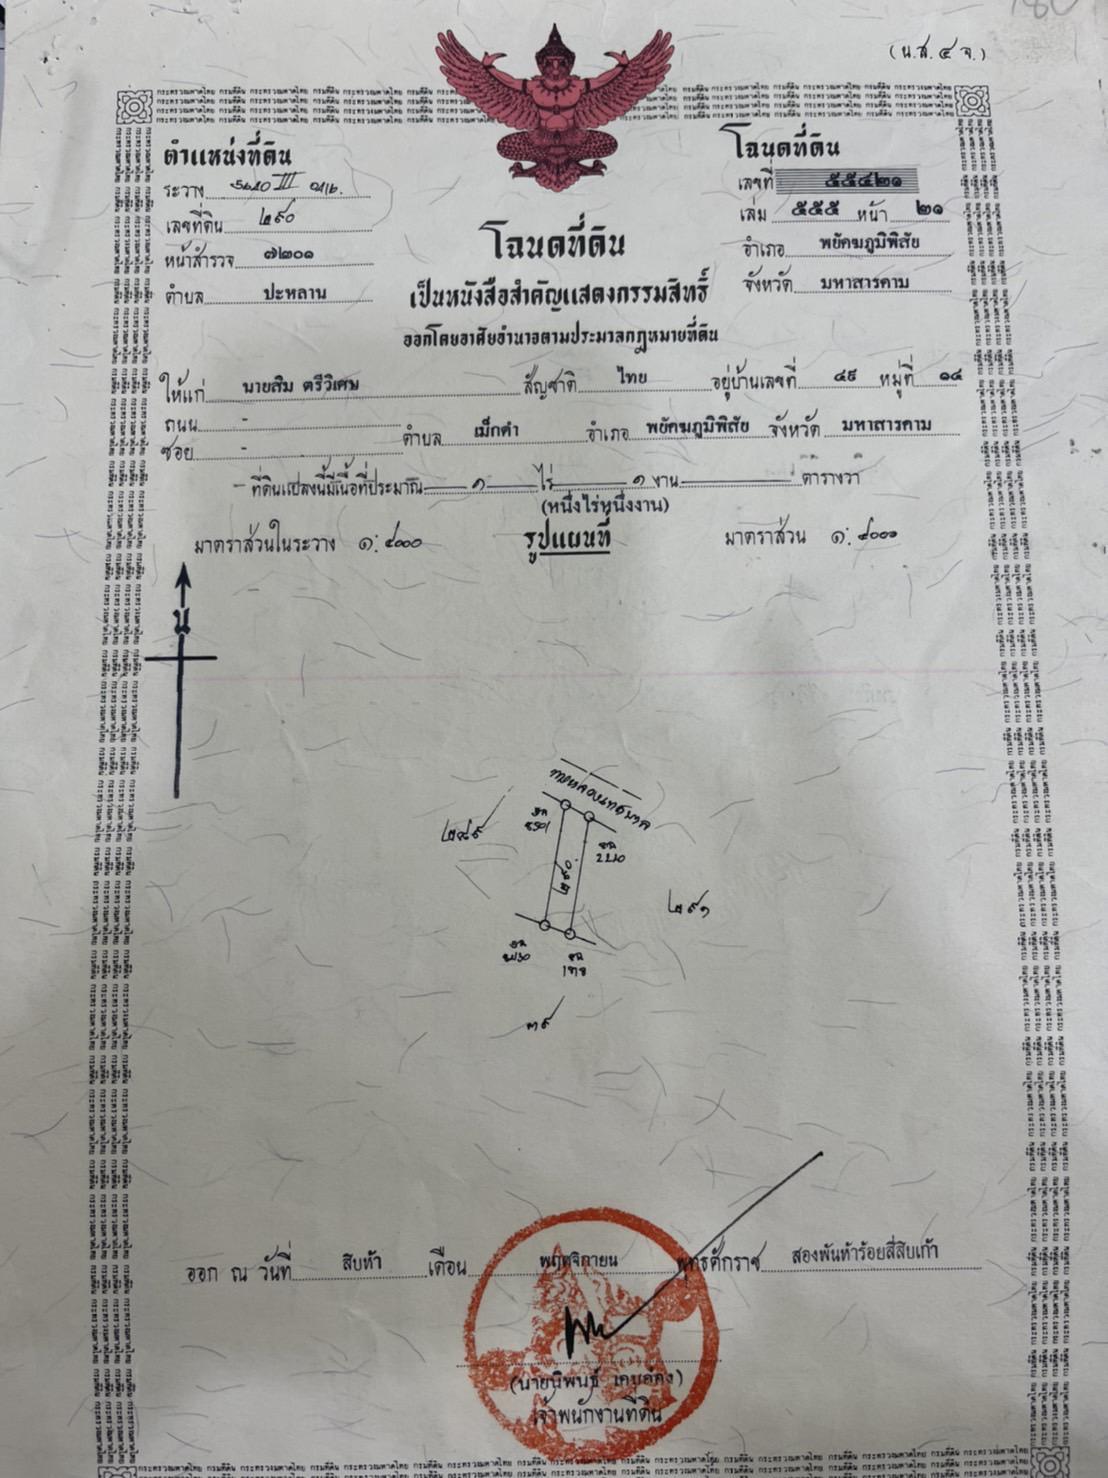 (น.ส.๔ จ.)
ตำแหน่งที่ดิน
ระวาง
เลขที่ดิน ๒๙๐
หน้าสำรวจ ๗๒๐๑
ตำบล ปะหลาน
โฉนดที่ดิน
เลขที่ ๕๕๔๒๑
เล่ม ๕๕๕ หน้า ๒๑
อำเภอ พยัคฆภูมิพิสัย
จังหวัด มหาสารคาม
โฉนดที่ดิน
เป็นหนังสือสำคัญแสดงกรรมสิทธิ์
ออกโดยอาศัยอำนาจตามประมวลกฎหมายที่ดิน
ให้แก่ นายสิม ตรีวิเศษ สัญชาติ ไทย อยู่บ้านเลขที่ ๔๙ หมู่ที่ ๑๔
ถนน -
ซอย - ตำบล เม็กดำ อำเภอ พยัคฆภูมิพิสัย จังหวัด มหาสารคาม
ที่ดินแปลงนี้มีเนื้อที่ประมาณ ๑ ไร่ ๑ งาน ตารางวา
(หนึ่งไร่หนึ่งงาน)
มาตราส่วนในระวาง ๑:๔๐๐๐ รูปแผนที่ มาตราส่วน ๑:๔๐๐๐
น
๒๘๙
๒๙๐
๒๙๑
๓๙
ออก ณ วันที่ สิบห้า เดือน พฤศจิกายน พุทธศักราช สองพันห้าร้อยสี่สิบเก้า
(นายนิพนธ์
เจ้าพนักงานที่ดิน